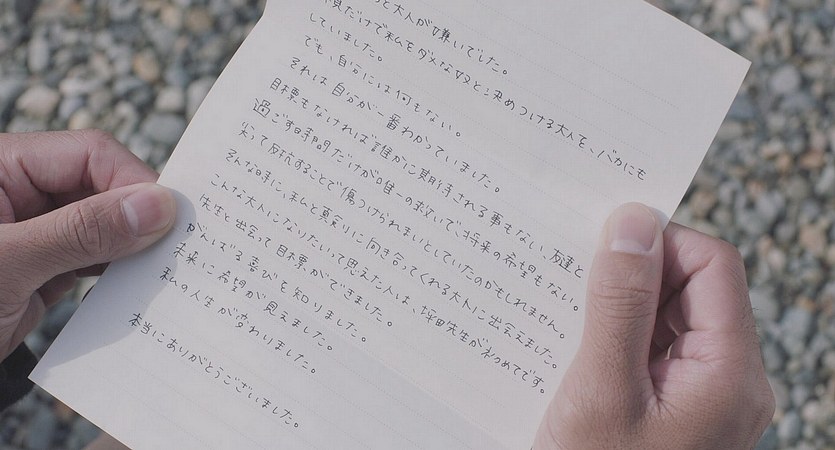 と大人が嫌いでした。
見だけで私をダメな奴と決めつける大人を、バカにも
していました。
でも、自分には何もない。
それは自分が一番わかっていました。
目標もなければ誰かに期待される事もない、友達と
過ごす時間だけが唯一の救いで、将来の希望もない。
尖って反抗することで傷つけられまいとしていたのかもしれません。
そんな時に、私と真剣に向き合ってくれる大人に出会えました。
こんな大人になりたいって思えた人は、坪田先生が初めてです。
先生と出会って目標ができました。
がんばる喜びを知りました。
未来に希望が見えました。
私の人生が変わりました。
本当にありがとうございました。